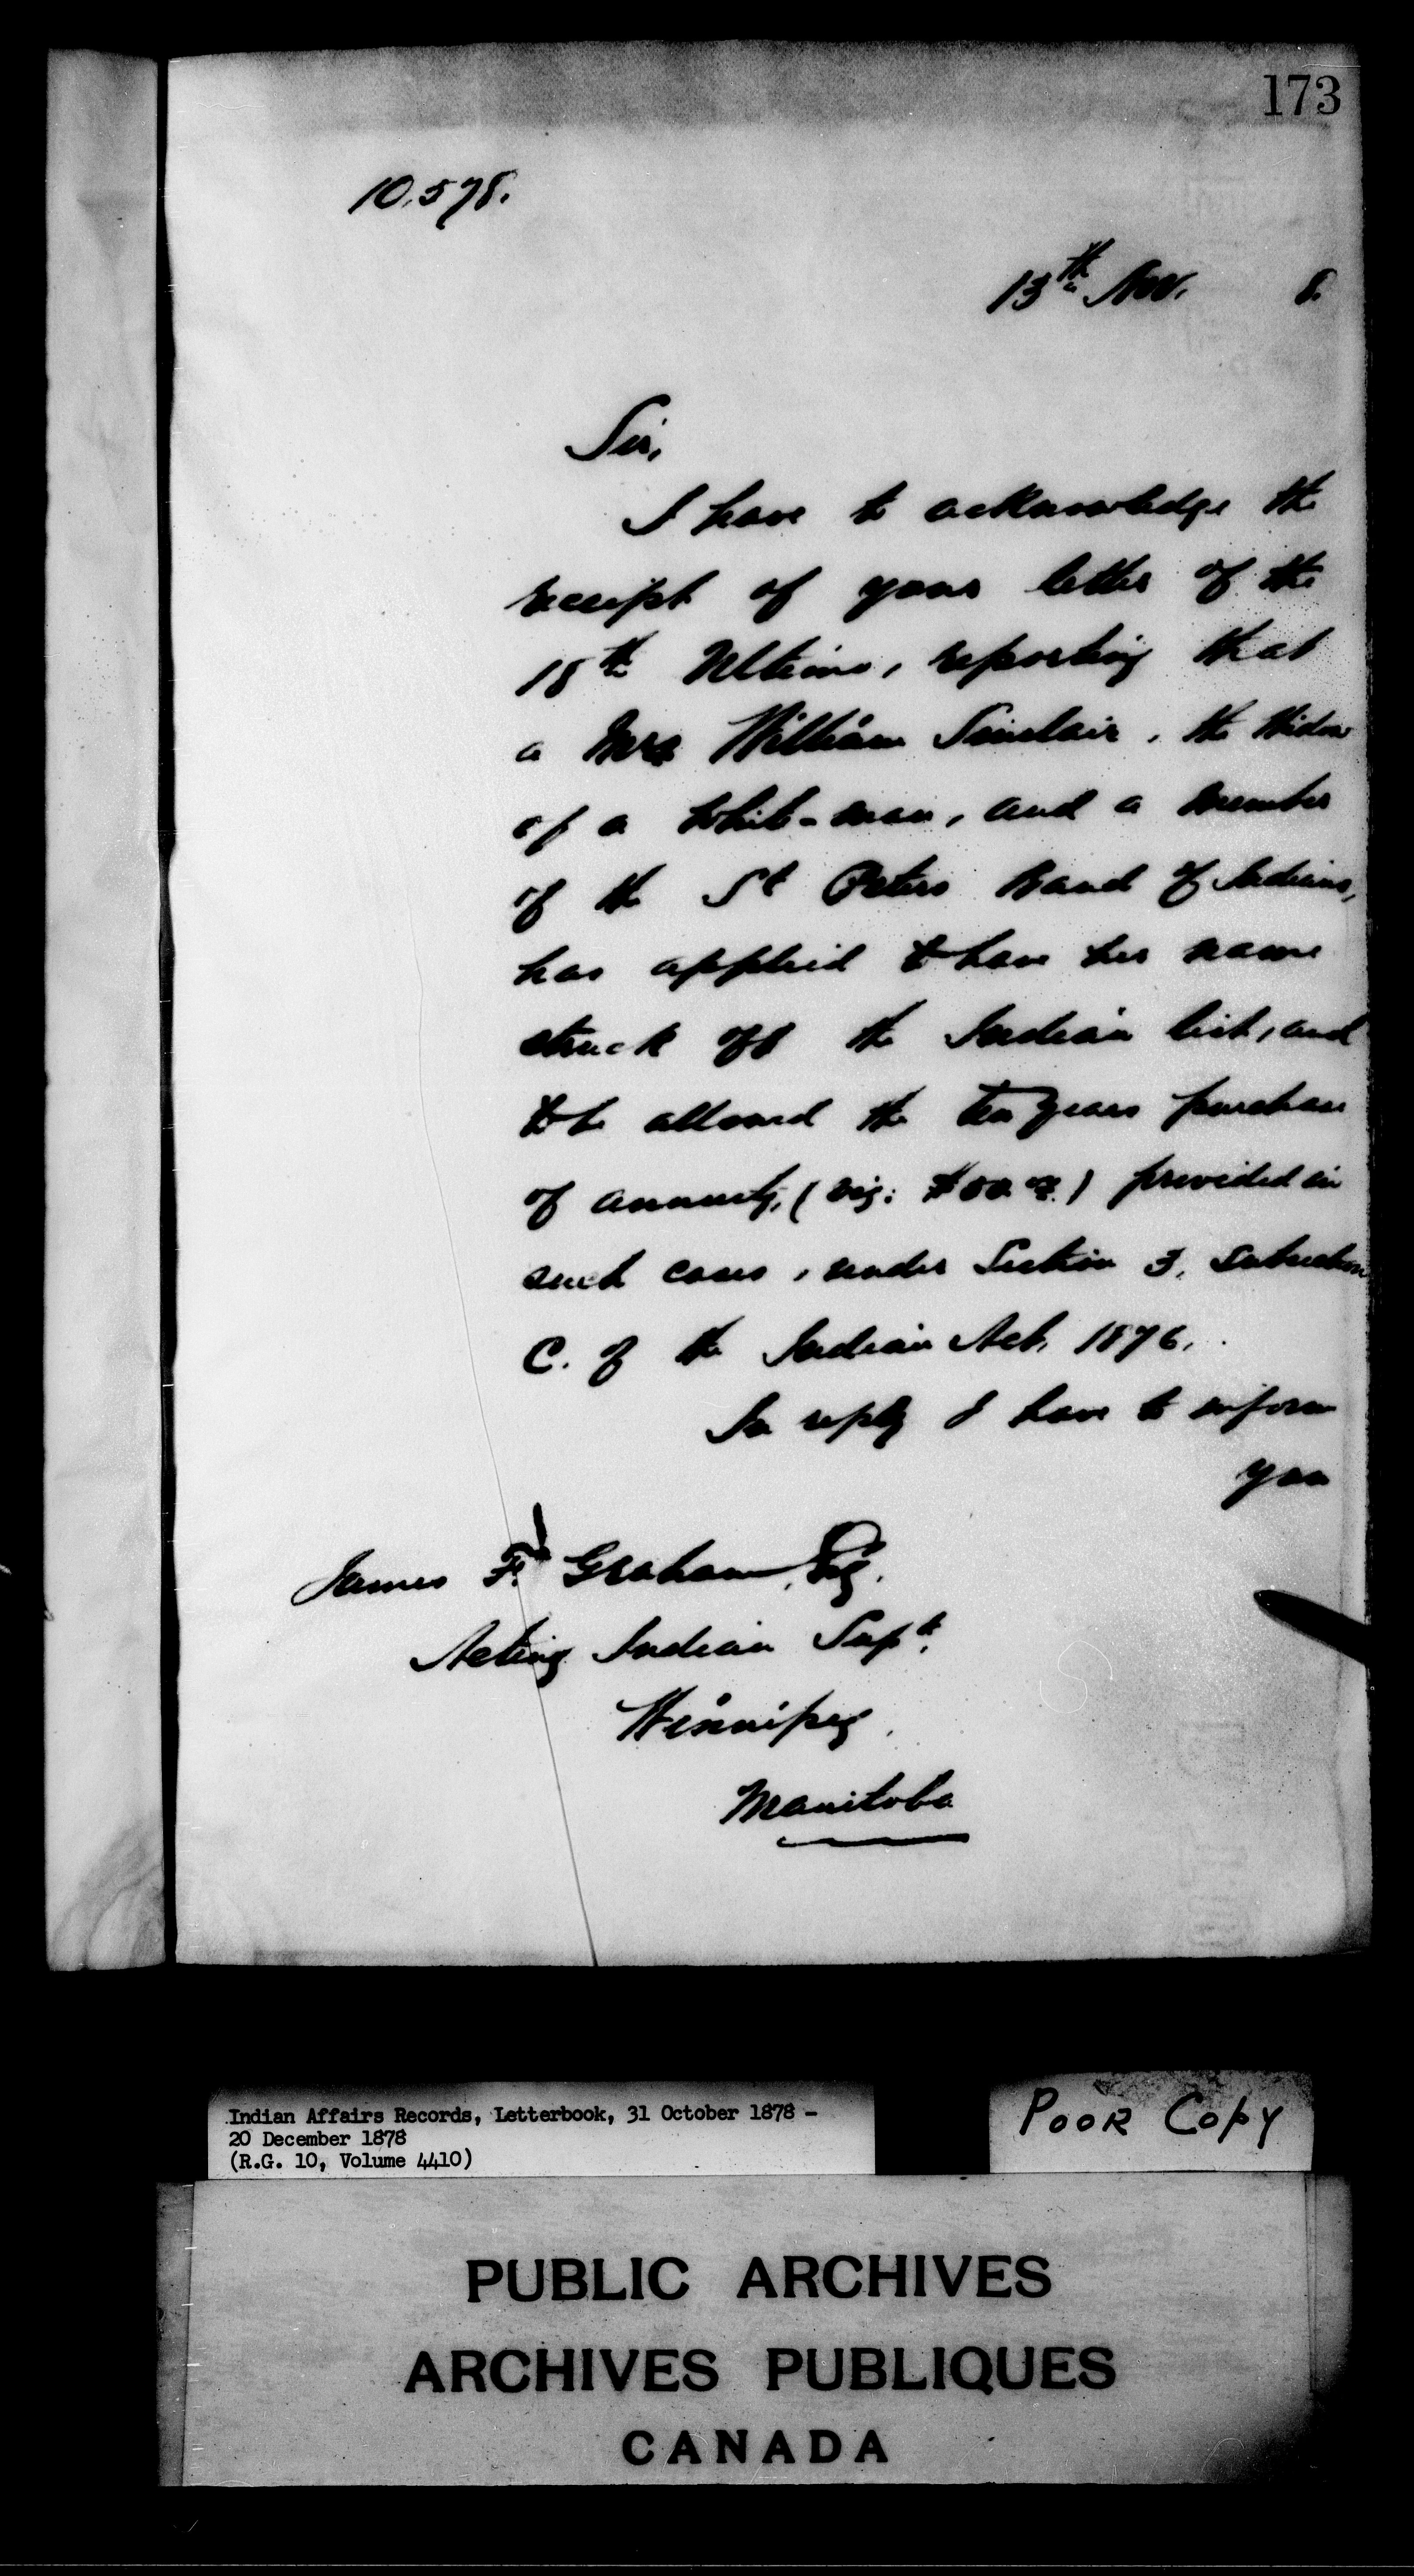 173
10,578.
13th Nov. 8.
Sir,
I have to acknowledge the
receipt of your letter of the
18th Ultimo, reporting that
a Mrs William Sinclair, the Widow
of a White-man, and a member
of the St Peters Band of Indians,
has applied to have her name
struck off the Indian list, and
to be allowed the ten years purchase
of annuity, (viz: $50.00) provided in
such cases, under Section 3, Subsection
C. of the Indian Act, 1876.
In reply I have to inform
you
James F. Graham, Esq.
Acting Indian Supt.
Winnipeg,
Manitoba
Indian Affairs Records, Letterbook, 31 October 1878 -
20 December 1878
(R.G. 10, Volume 4410)
POOR COPY
PUBLIC ARCHIVES
ARCHIVES PUBLIQUES
CANADA